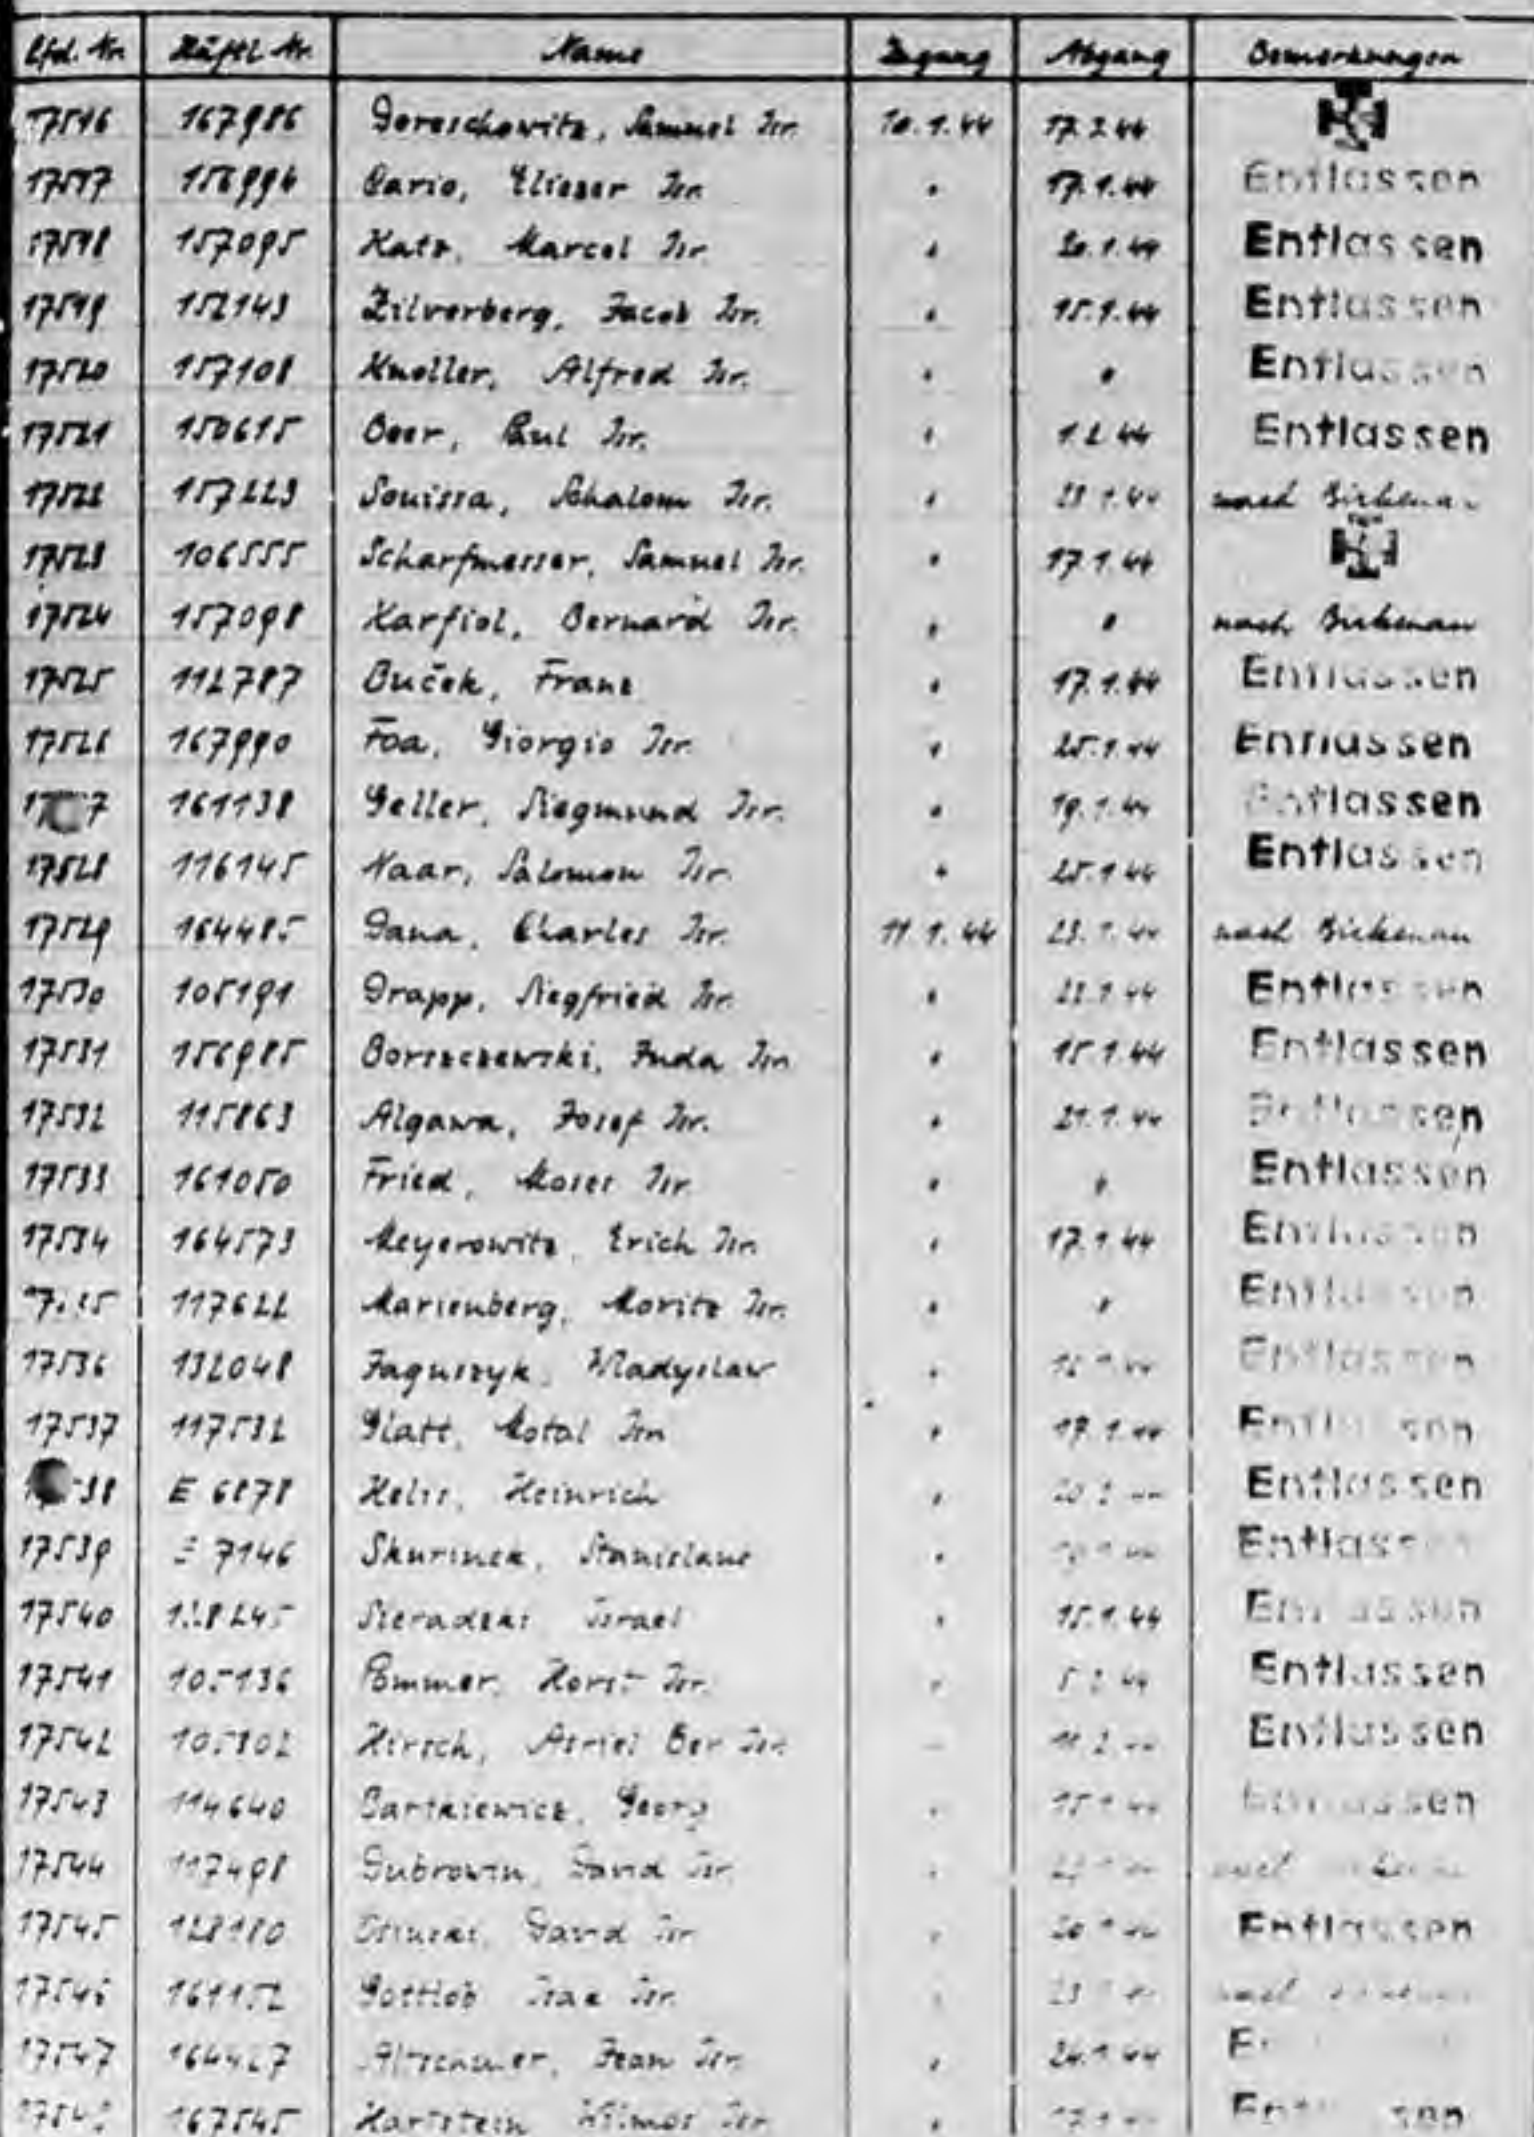 Lfd. Nr. Häftl. Nr. Name Zugang Abgang Bemerkungen
17516 167986 Doreschowitz, Samuel Isr. 10.1.44 17.2.44
17517 156994 Cario, Elieser Isr. " 17.1.44 Entlassen
17518 157095 Katz, Marcel Isr. " 20.1.44 Entlassen
17519 152143 Zilverberg, Jacob Isr. " 15.1.44 Entlassen
17520 157108 Knoller, Alfred Isr. " " Entlassen
17521 150615 Beer, Paul Isr. " 1.2.44 Entlassen
17522 157223 Souissa, Schalom Isr. " 23.1.44 nach Birkenau
17523 106555 Scharfmesser, Samuel Isr. " 17.1.44
17524 157098 Karfiol, Bernard Isr. " " nach Birkenau
17525 112787 Buček, Franz " 17.1.44 Entlassen
17526 167990 Foa, Giorgio Isr. " 25.1.44 Entlassen
161138 Geller, Siegmund Isr. " 19.1.44 Entlassen
17528 116145 Naar, Salomon Isr. " 25.1.44 Entlassen
17529 164485 Dana, Charles Isr. 11.1.44 23.1.44 nach Birkenau
17530 105191 Drapp, Siegfried Isr. " 22.1.44 Entlassen
17531 156985 Borszczewski, Juda Isr. " 15.1.44 Entlassen
17532 115863 Algawa, Josef Isr. " 21.1.44 Entlassen
17533 161050 Fried, Moses Isr. " " Entlassen
17534 164573 Meyerowitz, Erich Isr. " 17.1.44 Entlassen
117622 Marienberg, Moritz Isr. " " Entlassen
17536 132048 Jaguszyk, Wladyslaw " Entlassen
17537 117532 Glatt, Motal Isr. " 17.1.44 Entlassen
E 6878 Helis, Heinrich " Entlassen
17539 E 7146 Skurinek, Stanislaus " Entlassen
17540 Sieradzki Israel " 15.1.44 Entlassen
17541 105136 Pommer, Horst Isr. " Entlassen
17542 105802 Hirsch, Asriel Ber Isr. Entlassen
17543 114640 Bartkiewicz, Georg " 15.1.44 Entlassen
17544 117498 Dubrowin, David Isr. " nach
17545 128180 David Isr. " Entlassen
17546 161152 Gottlob Isr. nach
17547 164427 Jean Isr. " 24.1.44
167545 Hartstein Wilmos Isr. " Entlassen